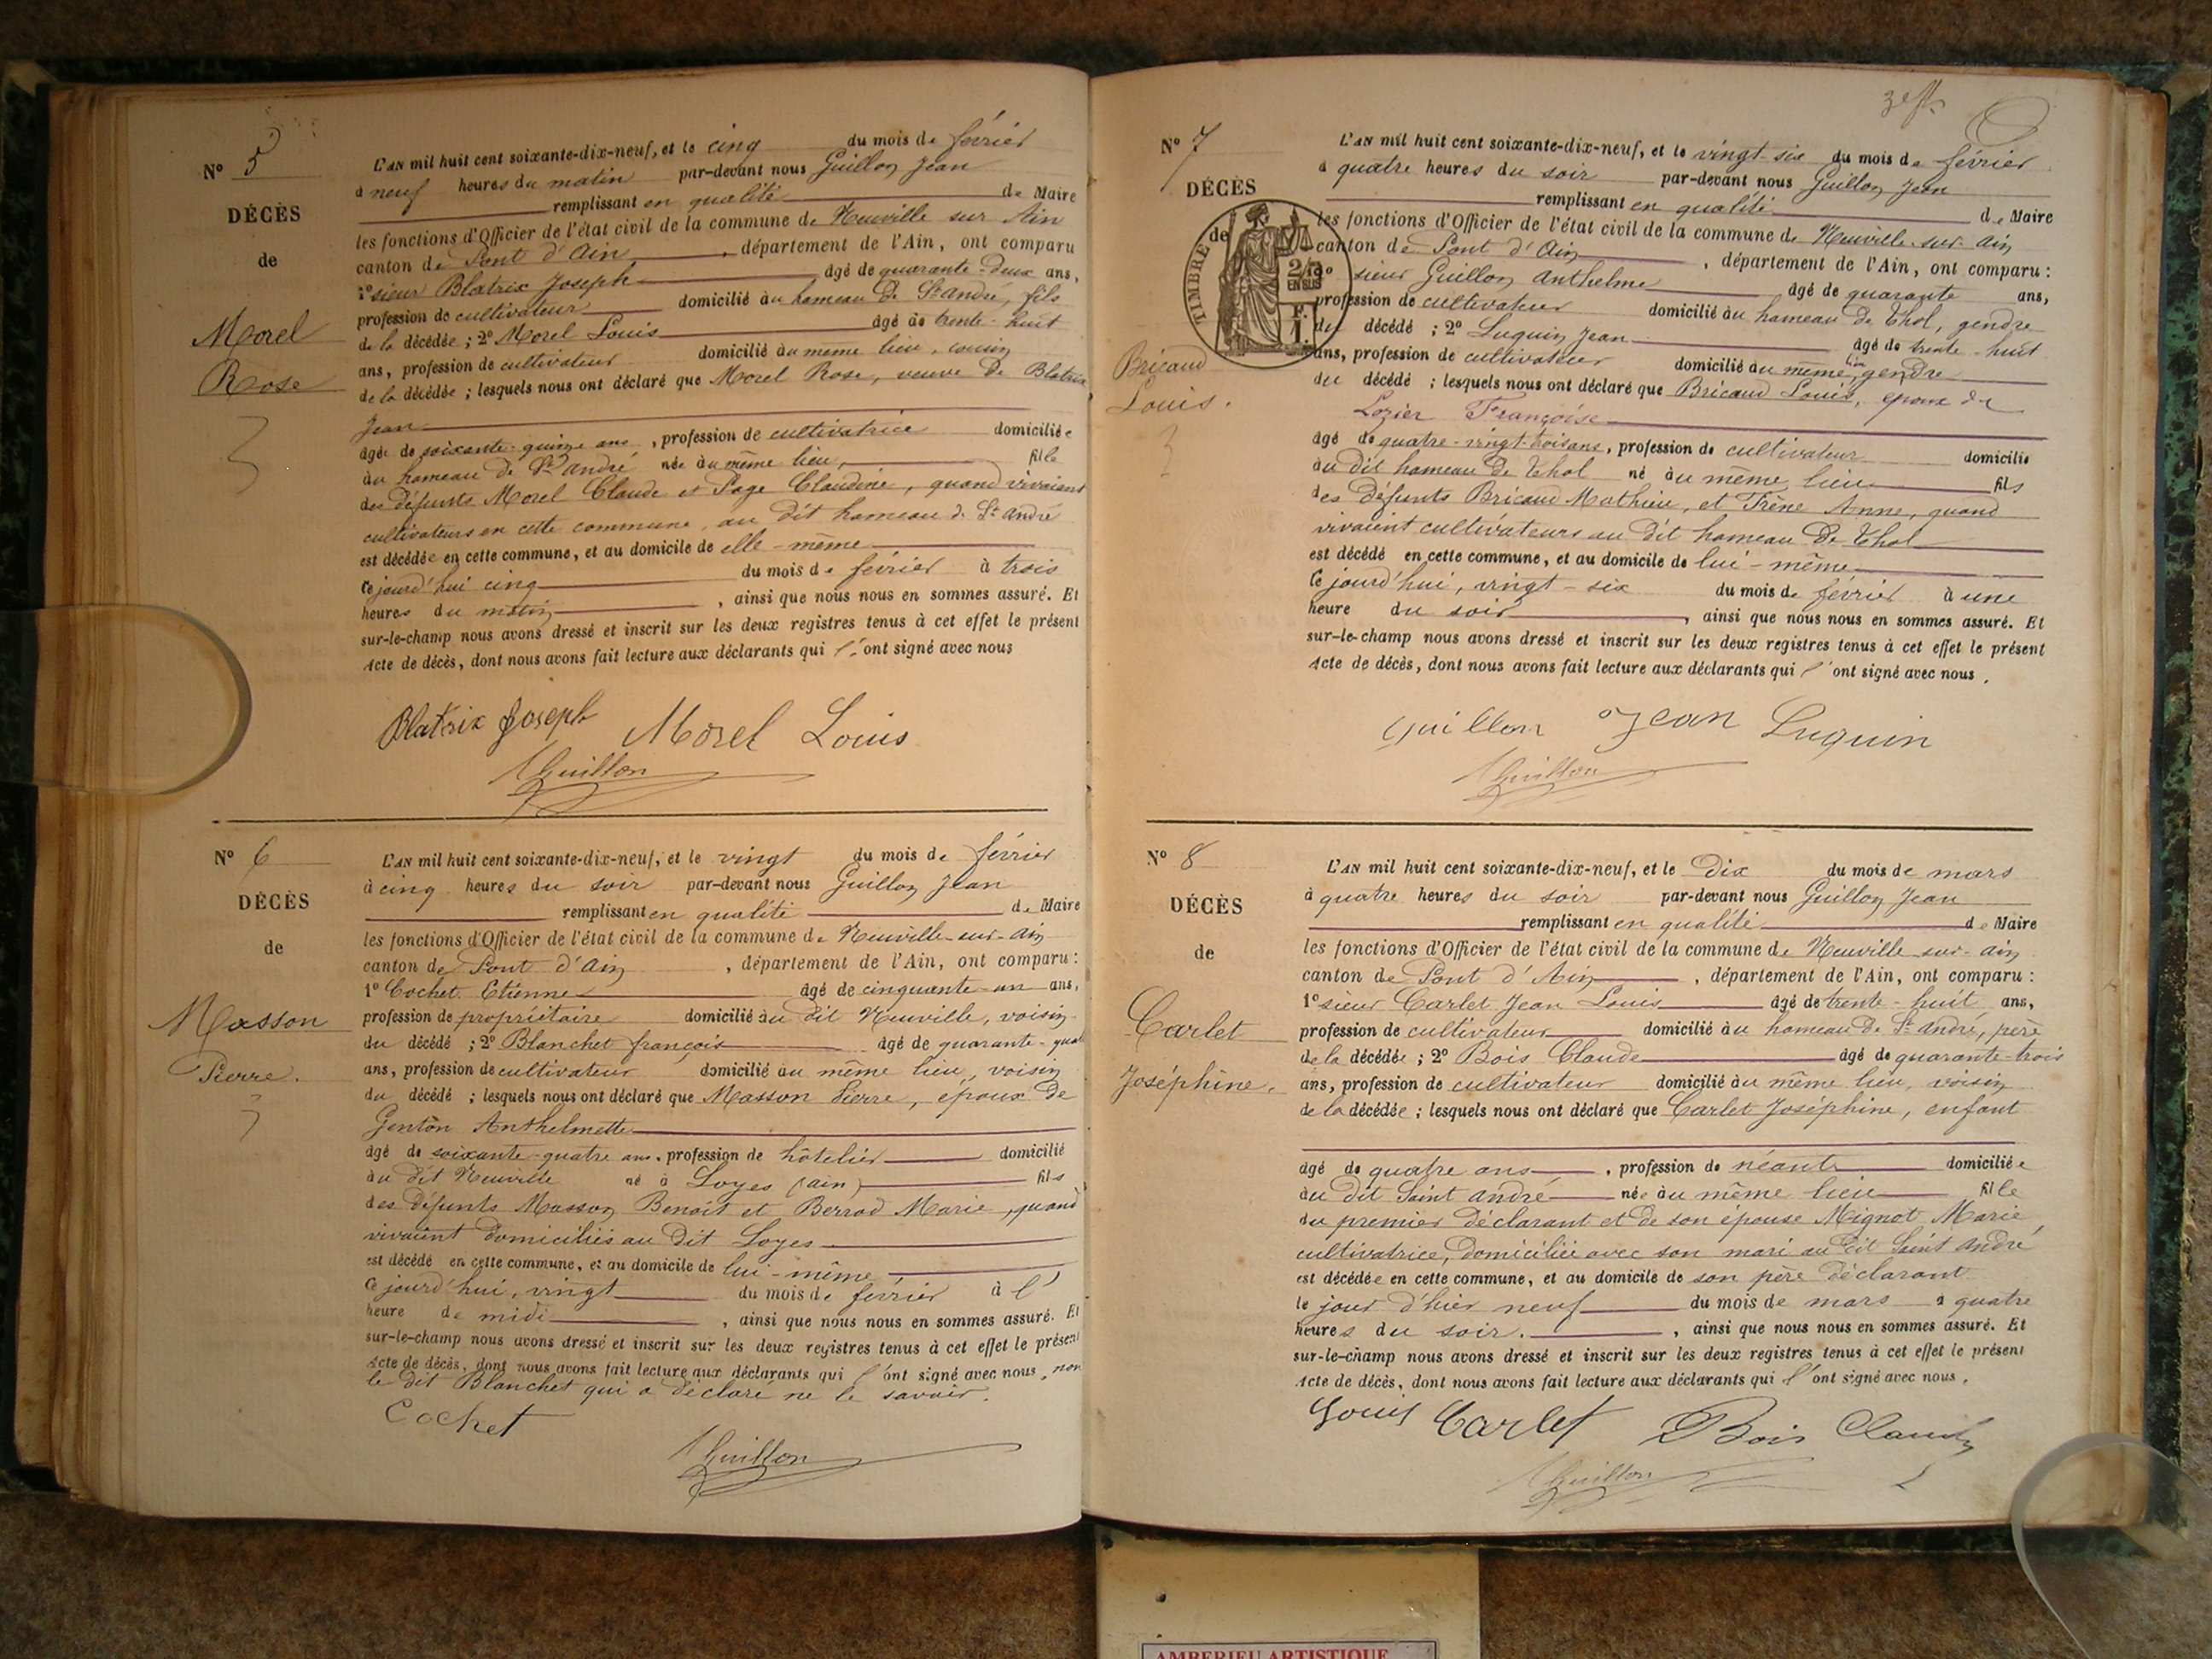 Nº 5
DÉCÈS
de
Morel
Rose
L'AN mil huit cent soixante-dix-neuf, et le cinq du mois de février
à neuf heures du matin par-devant nous Guillon Jean
remplissant en qualité de Maire
les fonctions d'Officier de l'état civil de la commune de Neuville sur Ain
canton de Pont d'Ain, département de l'Ain, ont comparu
1º sieur Blatrix Joseph âgé de quarante-deux ans,
profession de cultivateur domicilié au hameau de St André, fils
de la décédée ; 2º Morel Louis âgé de trente-huit
ans, profession de cultivateur domicilié au même lieu, cousin
de la décédée ; lesquels nous ont déclaré que Morel Rose, veuve de Blatrix
Jean
âgée de soixante-quinze ans, profession de cultivatrice domiciliée
au hameau de St André née au même lieu, fille
des défunts Morel Claude et Page Claudine, quand vivaient
cultivateurs en cette commune, au dit hameau de St André
est décédée en cette commune, et au domicile de elle-même
ce jourd'hui cinq du mois de février à trois
heures du matin, ainsi que nous nous en sommes assuré. Et
sur-le-champ nous avons dressé et inscrit sur les deux registres tenus à cet effet le présent
Acte de décès, dont nous avons fait lecture aux déclarants qui l'ont signé avec nous
Blatrix Joseph Morel Louis
Guillon
Nº 6
DÉCÈS
de
Masson
Pierre.
L'AN mil huit cent soixante-dix-neuf, et le vingt du mois de février
à cinq heures du soir par-devant nous Guillon Jean
remplissant en qualité de Maire
les fonctions d'Officier de l'état civil de la commune de Neuville-sur-Ain
canton de Pont d'Ain, département de l'Ain, ont comparu :
1º Cochet Etienne âgé de cinquante-un ans,
profession de propriétaire domicilié au dit Neuville, voisin
du décédé ; 2º Blanchet françois âgé de quarante-quat
ans, profession de cultivateur domicilié au même lieu, voisin
du décédé ; lesquels nous ont déclaré que Masson Pierre, époux de
Genton Anthelmette
âgé de soixante-quatre ans, profession de hôtelier domicilié
au dit Neuville né à Loyes (ain) fils
des défunts Masson Benoît et Berrod Marie, quand
vivaient domiciliés au dit Loyes
est décédé en cette commune, et au domicile de lui-même
ce jourd'hui, vingt du mois de février à l'
heure de midi, ainsi que nous nous en sommes assuré. Et
sur-le-champ nous avons dressé et inscrit sur les deux registres tenus à cet effet le présent
Acte de décès, dont nous avons fait lecture aux déclarants qui l'ont signé avec nous, non
le dit Blanchet qui a déclaré ne le savoir.
Cochet
Guillon
Nº 7
DÉCÈS
de
TIMBRE
2/10
EN SUS
F.
1.
Bricaud
Louis.
L'AN mil huit cent soixante-dix-neuf, et le vingt-six du mois de février
à quatre heures du soir par-devant nous Guillon Jean
remplissant en qualité de Maire
les fonctions d'Officier de l'état civil de la commune de Neuville-sur-Ain
canton de Pont d'Ain, département de l'Ain, ont comparu :
1º sieur Guillon Anthelme âgé de quarante ans,
profession de cultivateur domicilié au hameau de Thol, gendre
du décédé ; 2º Luquin Jean âgé de trente-huit
ans, profession de cultivateur domicilié au même lieu, gendre
du décédé ; lesquels nous ont déclaré que Bricaud Louis, époux de
Lozier Françoise
âgé de quatre-vingt-trois ans, profession de cultivateur domicilié
au dit hameau de Thol né au même lieu fils
des défunts Bricaud Mathieu, et Frène Anne, quand
vivaient cultivateurs au dit hameau de Thol
est décédé en cette commune, et au domicile de lui-même
ce jourd'hui, vingt-six du mois de février à une
heure du soir, ainsi que nous nous en sommes assuré. Et
sur-le-champ nous avons dressé et inscrit sur les deux registres tenus à cet effet le présent
Acte de décès, dont nous avons fait lecture aux déclarants qui l'ont signé avec nous.
Guillon Jean Luquin
Guillon
Nº 8
DÉCÈS
de
Carlet
Joséphine.
L'AN mil huit cent soixante-dix-neuf, et le Dix du mois de mars
à quatre heures du soir par-devant nous Guillon Jean
remplissant en qualité de Maire
les fonctions d'Officier de l'état civil de la commune de Neuville-sur-Ain
canton de Pont d'Ain, département de l'Ain, ont comparu :
1º sieur Carlet Jean Louis âgé de trente-huit ans,
profession de cultivateur domicilié au hameau de St André, père
de la décédée ; 2º Bois Claude âgé de quarante-trois
ans, profession de cultivateur domicilié au même lieu, voisin
de la décédée ; lesquels nous ont déclaré que Carlet Joséphine, enfant
âgé de quatre ans, profession de néante domiciliée
au dit Saint André née au même lieu fille
du premier déclarant et de son épouse Mignot Marie,
cultivatrice, domiciliée avec son mari au dit Saint André
est décédée en cette commune, et au domicile de son père déclarant
le jour d'hier neuf du mois de mars à quatre
heures du soir., ainsi que nous nous en sommes assuré. Et
sur-le-champ nous avons dressé et inscrit sur les deux registres tenus à cet effet le présent
Acte de décès, dont nous avons fait lecture aux déclarants qui l'ont signé avec nous.
Louis Carlet Bois Claude
Guillon
AMBERIEU ARTISTIQUE